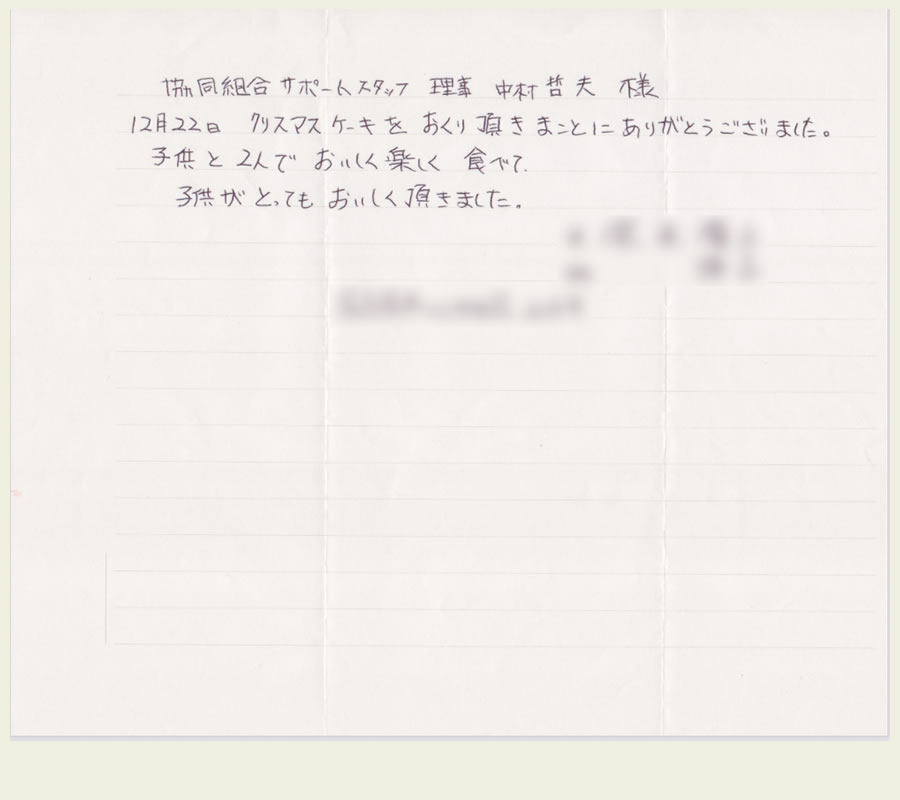 協同組合サポートスタッフ 理事 中村哲夫 様
12月22日 クリスマスケーキを おくり頂きまことにありがとうございました。
子供と2人で おいしく楽しく 食べて、
子供がとっても おいしく頂きました。